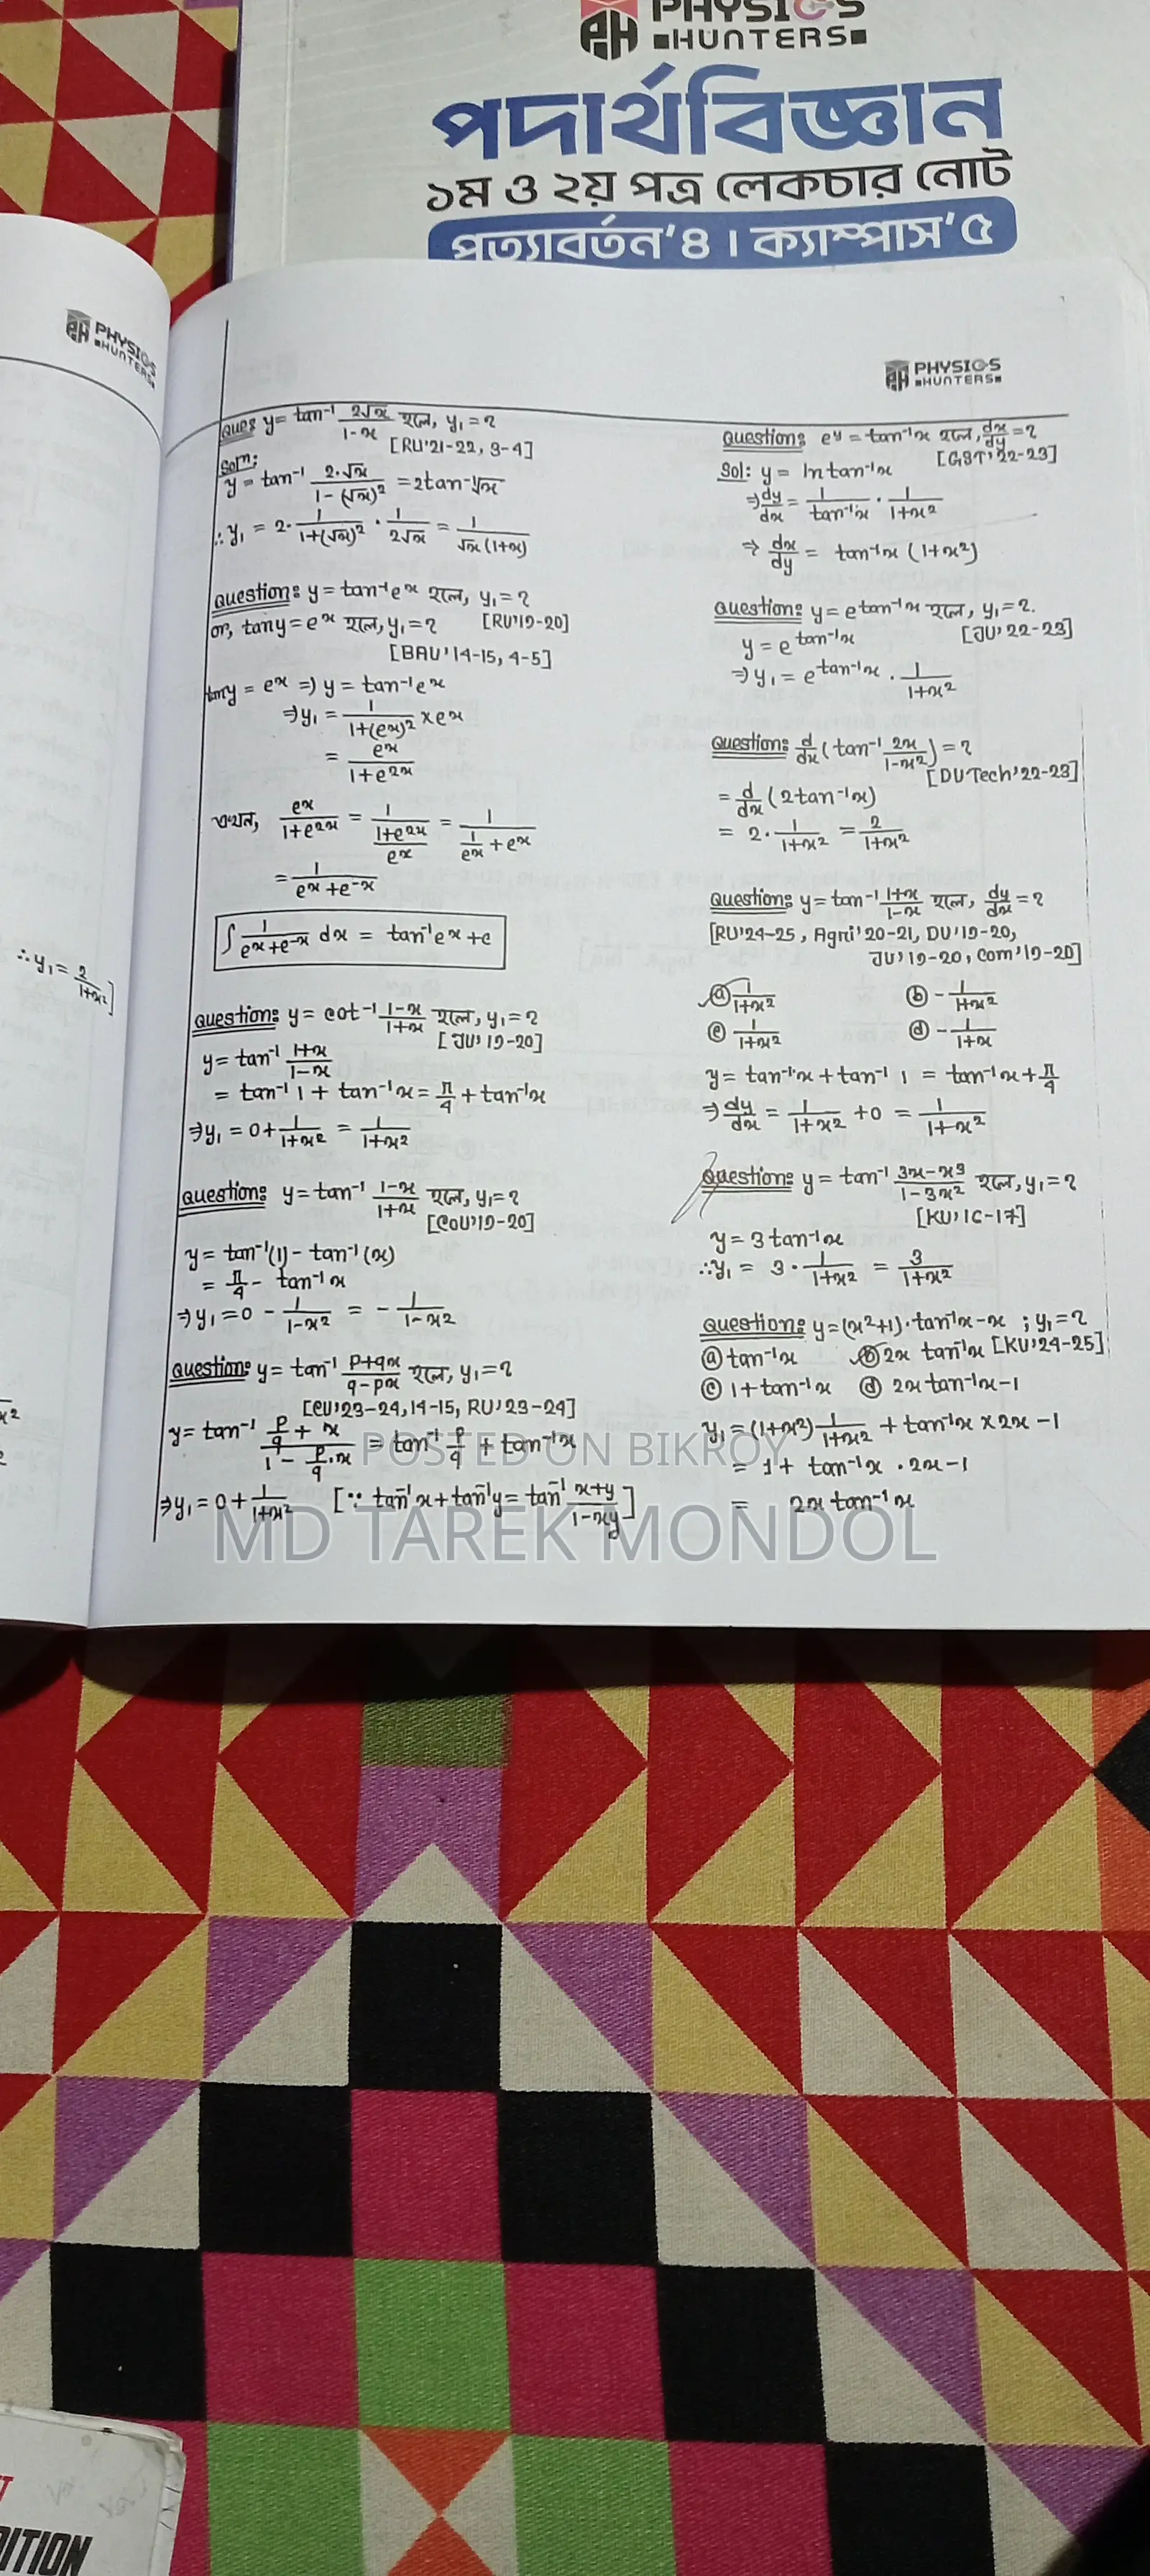 PHYSICS
HUNTERS
পদার্থবিজ্ঞান
১ম ও ২য় পত্র লেকচার নোট
পত্যাবর্তন'৪ । ক্যাম্পাস'৫
PHYSICS
HUNTERS
∴y₁ = 2/(1+x²)]
PHYSICS
HUNTERS
Ques: y = tan⁻¹ 2√x/(1-x) হলে, y₁ = ?
[RU'21-22, 3-4]
Solⁿ:
y = tan⁻¹ 2·√x/(1-(√x)²) = 2tan⁻¹√x
∴y₁ = 2· 1/(1+(√x)²) · 1/(2√x) = 1/(√x(1+x))
Question: y = tan⁻¹eˣ হলে, y₁ = ?
or, tany = eˣ হলে, y₁ = ? [RU'19-20]
[BAU'14-15, 4-5]
tany = eˣ ⇒ y = tan⁻¹eˣ
⇒y₁ = 1/(1+(eˣ)²) × eˣ
= eˣ/(1+e²ˣ)
এখন, eˣ/(1+e²ˣ) = 1/((1+e²ˣ)/eˣ) = 1/(1/eˣ + eˣ)
= 1/(eˣ+e⁻ˣ)
∫ 1/(eˣ+e⁻ˣ) dx = tan⁻¹eˣ + c
Question: y = cot⁻¹ (1-x)/(1+x) হলে, y₁ = ?
[JU'19-20]
y = tan⁻¹ (1+x)/(1-x)
= tan⁻¹ 1 + tan⁻¹x = π/4 + tan⁻¹x
⇒y₁ = 0 + 1/(1+x²) = 1/(1+x²)
Question: y = tan⁻¹ (1-x)/(1+x) হলে, y₁ = ?
[COU'19-20]
y = tan⁻¹(1) - tan⁻¹(x)
= π/4 - tan⁻¹x
⇒y₁ = 0 - 1/(1-x²) = - 1/(1-x²)
Question: y = tan⁻¹ (p+qx)/(q-px) হলে, y₁ = ?
[CU'23-24, 14-15, RU'23-24]
y = tan⁻¹ (p/q + x)/(1 - p/q·x) = tan⁻¹ p/q + tan⁻¹x
⇒y₁ = 0 + 1/(1+x²) [∵ tan⁻¹x + tan⁻¹y = tan⁻¹ (x+y)/(1-xy)]
Question: eʸ = tan⁻¹x হলে, dx/dy = ?
[GST'22-23]
Sol: y = ln tan⁻¹x
⇒ dy/dx = 1/tan⁻¹x · 1/(1+x²)
⇒ dx/dy = tan⁻¹x (1+x²)
Question: y = e^(tan⁻¹x) হলে, y₁ = ?.
y = e^(tan⁻¹x) [JU'22-23]
⇒y₁ = e^(tan⁻¹x) · 1/(1+x²)
Question: d/dx (tan⁻¹ 2x/(1-x²)) = ?
[DUTech'22-23]
= d/dx (2tan⁻¹x)
= 2· 1/(1+x²) = 2/(1+x²)
Question: y = tan⁻¹ (1+x)/(1-x) হলে, dy/dx = ?
[RU'24-25, Agri'20-21, DU'19-20,
JU'19-20, Com'19-20]
ⓐ 1/(1+x²) ⓑ - 1/(1+x²)
ⓒ 1/(1+x²) ⓓ - 1/(1+x)
y = tan⁻¹x + tan⁻¹ 1 = tan⁻¹x + π/4
⇒ dy/dx = 1/(1+x²) + 0 = 1/(1+x²)
Question: y = tan⁻¹ (3x-x³)/(1-3x²) হলে, y₁ = ?
[KU'16-17]
y = 3tan⁻¹x
∴y₁ = 3· 1/(1+x²) = 3/(1+x²)
Question: y = (x²+1)·tan⁻¹x - x ; y₁ = ?
ⓐ tan⁻¹x ⓑ 2x tan⁻¹x [KU'24-25]
ⓒ 1+tan⁻¹x ⓓ 2x tan⁻¹x-1
y₁ = (1+x²) 1/(1+x²) + tan⁻¹x × 2x - 1
= 1 + tan⁻¹x · 2x - 1
= 2x tan⁻¹x
POSTED ON BIKROY
MD TAREK MONDOL